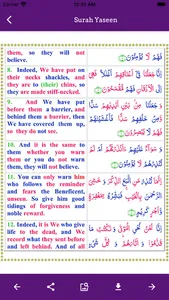 10:51 AM
Surah Yaseen
them, so they will not
believe.
فَهُمْ لَا يُؤْمِنُونَ
8. Indeed, We have put on
their necks shackles, and
they are to (their) chins, so
they are made stiff-necked.
إِنَّا جَعَلْنَا فِىٓ أَعْنَاقِهِمْ أَغْلَالًا
فَهِىَ إِلَى ٱلْأَذْقَانِ فَهُم
مُّقْمَحُونَ
9. And We have put
before them a barrier, and
behind them a barrier, then
We have covered them up,
so they do not see.
وَجَعَلْنَا مِنۢ بَيْنِ أَيْدِيهِمْ سَدًّا
وَمِنْ خَلْفِهِمْ سَدًّا
فَأَغْشَيْنَاهُمْ فَهُمْ لَا يُبْصِرُونَ
10. And it is the same to
them whether you warn
them or you do not warn
them, they will not believe.
وَسَوَآءٌ عَلَيْهِمْ ءَأَنذَرْتَهُمْ أَمْ
لَمْ تُنذِرْهُمْ لَا يُؤْمِنُونَ
11. You can only warn him
who follows the reminder
and fears the Beneficent,
unseen. So give him good
tidings of forgiveness and
noble reward.
إِنَّمَا تُنذِرُ مَنِ ٱتَّبَعَ ٱلذِّكْرَ
وَخَشِىَ ٱلرَّحْمَٰنَ بِٱلْغَيْبِ
فَبَشِّرْهُ بِمَغْفِرَةٍ
وَأَجْرٍ كَرِيمٍ
12. Indeed, it is We who give
life to the dead, and We
record what they sent before
and left behind. And of all
إِنَّا نَحْنُ نُحْىِ ٱلْمَوْتَىٰ
وَنَكْتُبُ مَا قَدَّمُوا۟
وَءَاثَارَهُمْ